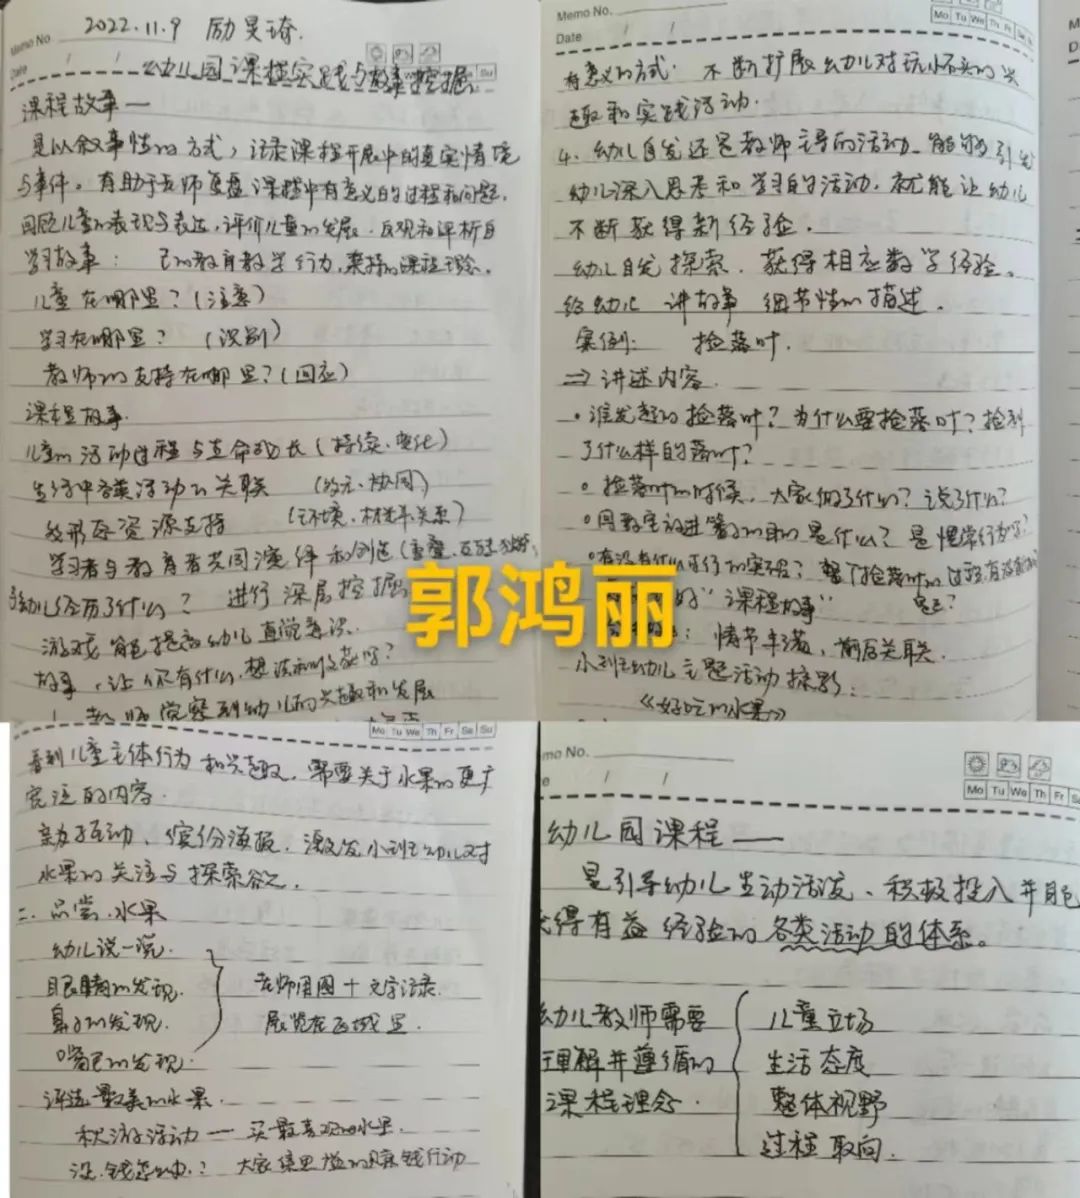 2022.11.9 励昊琦.
Memo No.
Date
幼儿园课程实践与故事挖掘
课程故事—
是以叙事性的方式,记录课程开展中的真实情境
与事件。有助于老师复盘课程中有意义的过程和问题,
回顾儿童的表现与表达,评价儿童的发展.反观和评析自
学习故事: 己的教育教学行为,秉持的课程理念。
儿童在哪里?(注意)
学习在哪里?(识别)
教师的支持在哪里?(回应)
课程故事.
儿童的活动过程与生命成长(持续、变化)
生活中各类活动的关联 (多元、协同)
多形态资源支持 (环境、材料、关系)
学习者与教育者共同演绎和创造(
幼儿经历了什么? 进行深层挖掘
游戏能提高幼儿直觉意识.
故事,让你有什么想法和收获吗?
1. 教师觉察到幼儿的兴趣和发展
郭鸿丽
Memo No.
Mo Tu We Th Fr Sa Su
Date
有意义的方式. 不断扩展幼儿对玩小石头的兴
趣和实践活动.
4. 幼儿自发还是教师主导的活动_能够引发
幼儿深入思考和学习的活动.就能让幼儿
不断获得新经验.
幼儿自发探索.获得相应数学经验。
给幼儿讲故事 细节性的描述.
案例: 捡落叶.
⇒ 讲述内容.
·谁发起的捡落叶?为什么要捡落叶?捡到
了什么样的落叶?
·捡落叶的时候,大家做了什么?说了什么?
的目的是什么?是惯常行为吗?
·有没有什么可行的实验?整个捡落叶的过程有没有
的“课程故事”
: 情节丰满,前后关联.
小班幼儿主题活动掠影:
《好吃的水果》
Mo Tu We Th Fr Sa Su
看到儿童主体行为和兴趣,需要关于水果的更广
宽泛的内容.
亲子互动、缤纷海报.激发小班幼儿对
水果的关注与探索欲.
二. 品尝水果
幼儿说一说.
眼睛的发现.
鼻子的发现.
嘴巴的发现.
老师用图+文字记录.
展览在区域里.
评选最美的水果.
秋游活动— 买最喜欢的水果.
没钱怎么办? 大家集思广益的赚钱行动
Memo No.
Mo Tu We Th Fr Sa
幼儿园课程——
是引导幼儿生动活泼、积极投入并能
获得有益经验的各类活动的体系。
幼儿教师需要
理解并遵循的
课程理念.
儿童立场
生活态度
整体视野
过程取向.